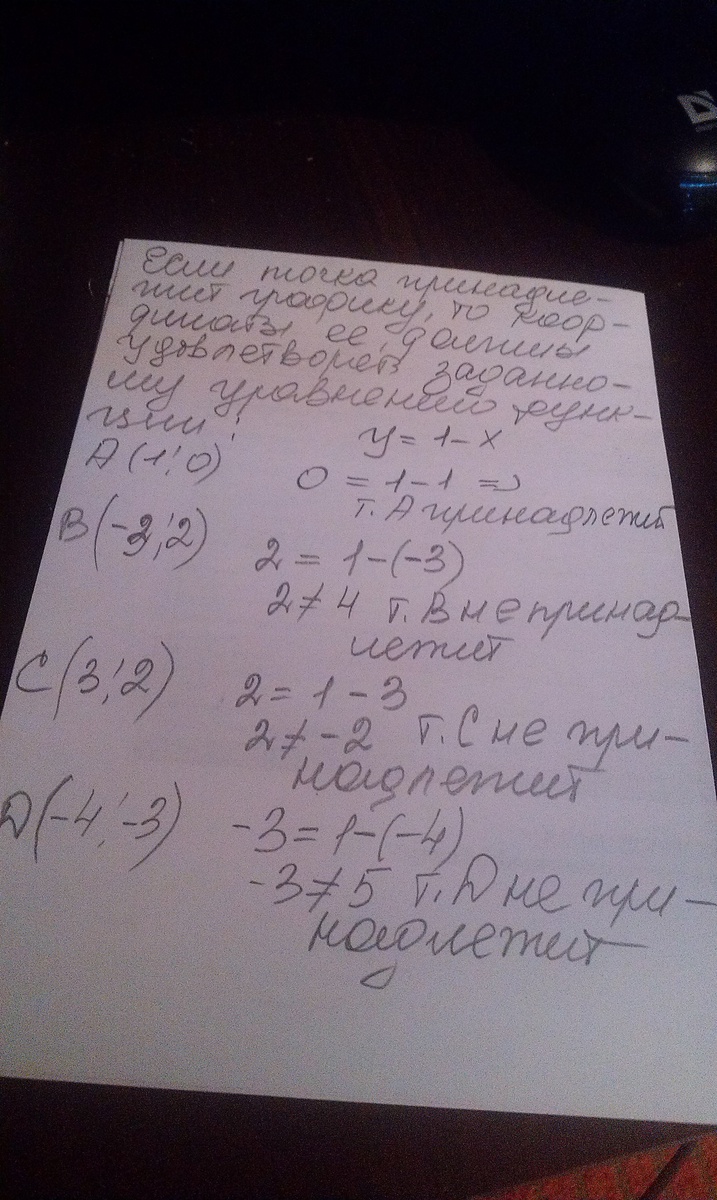 Если точка принадле-
жит графику, то коор-
динаты ее должны
удовлетворять заданно-
му уравнению функ-
ции:
y = 1 - x
A (1; 0)
0 = 1 - 1 =>
т. A принадлежит
B (-3; 2)
2 = 1 - (-3)
2 ≠ 4 т. B не принад-
лежит
C (3; 2)
2 = 1 - 3
2 ≠ -2 т. C не при-
надлежит
D (-4; -3)
-3 = 1 - (-4)
-3 ≠ 5 т. D не при-
надлежит